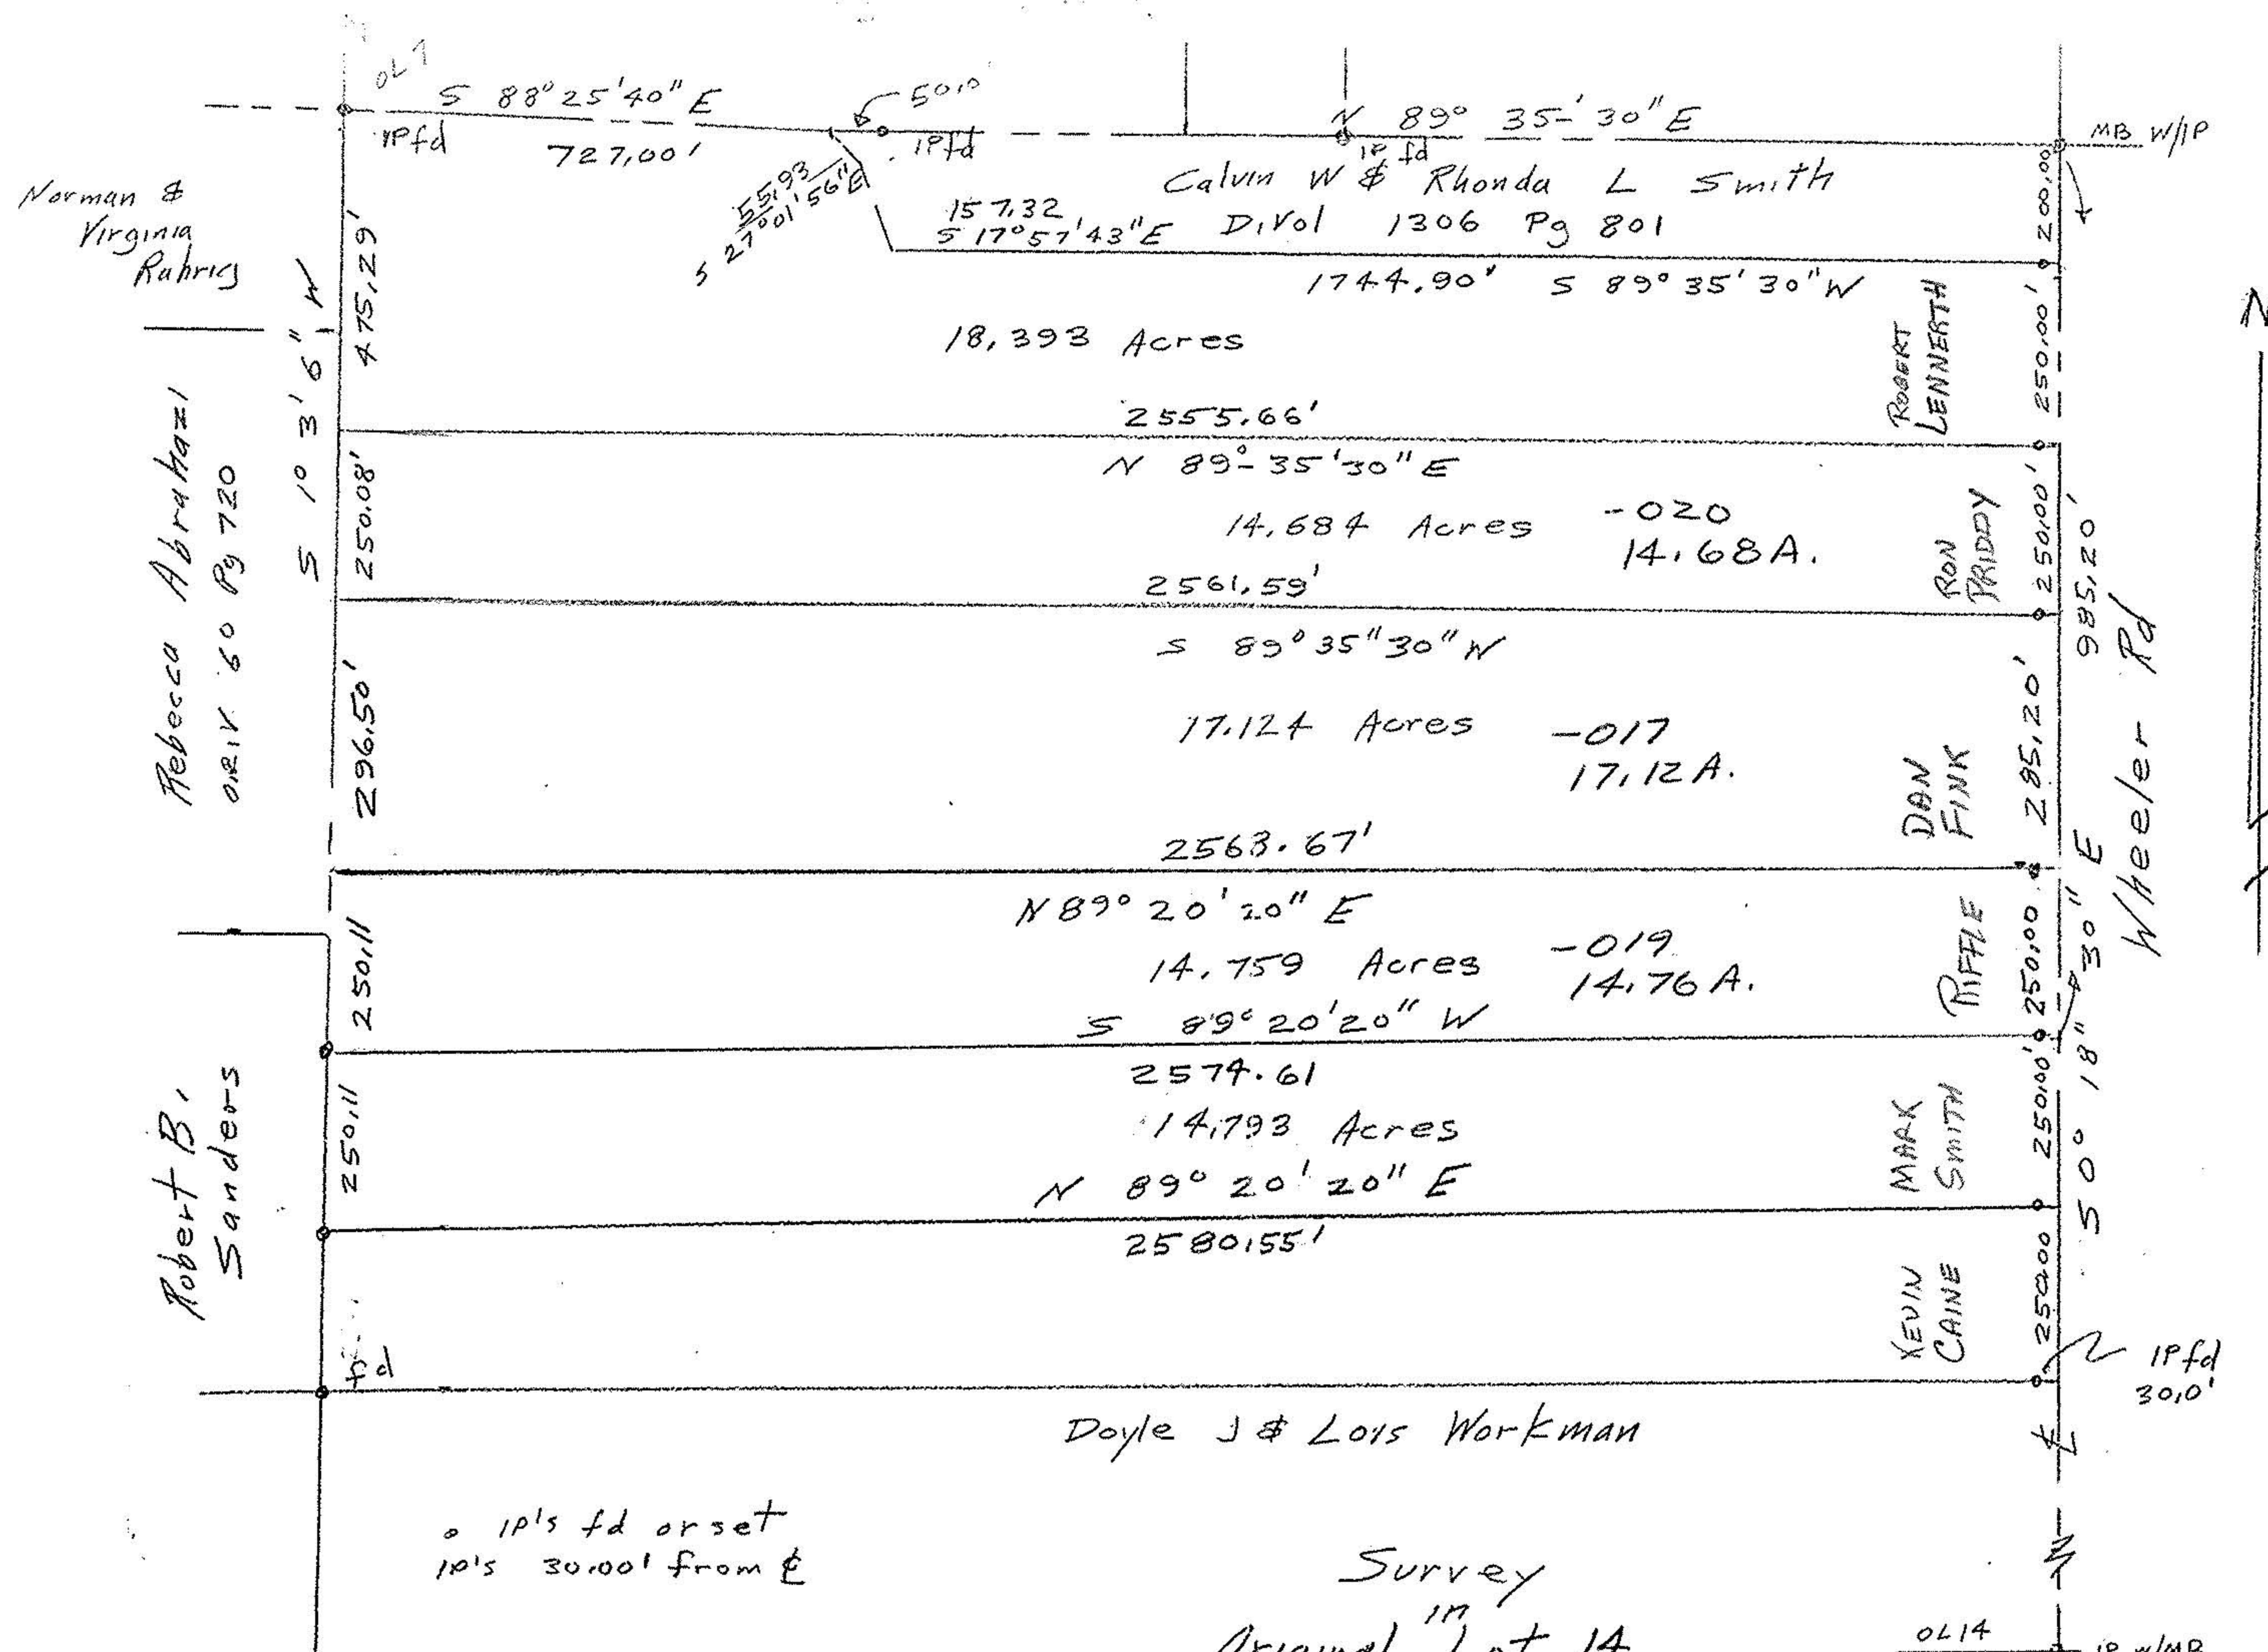 OL 7
S 88° 25' 40" E
50.0
IPfd
727.00'
IPfd
N 89° 35' 30" E
IP fd
MB W/IP
Norman &
Virginia
55.93
S 27° 01' 56" E
157.32
S 17° 57' 43" E
Calvin W & Rhonda L Smith
D.Vol 1306 Pg 801
200.00
1744.90' S 89° 35' 30" W
475.29'
S 1° 3' 6" W
18.393 Acres
ROBERT
LENNERTH
250.00'
N
2555.66'
N 89° 35' 30" E
Rebecca Abrahazi
O.R.V. 60 Pg 720
250.08'
14.684 Acres
-020
14.68 A.
RON
PRIDDY
250.00'
985.20'
2561.59'
S 89° 35" 30" W
296.50'
17.124 Acres
-017
17.12 A.
DAN
FINK
285.20'
Wheeler Rd
2563.67'
N 89° 20' 20" E
250.11
14.759 Acres
-019
14.76 A.
RIFFLE
250.00
S 0° 18" 30" E
S 89° 20' 20" W
2574.61
Robert B.
Sanders
250.11
14.793 Acres
MARK
SMITH
250.00'
N 89° 20' 20" E
2580.55'
KEVIN
CAINE
250.00
fd
IPfd
30.0'
Doyle J & Lois Workman
o IP's fd or set
IP's 30.00' from ℄
Survey
in
Original Lot 14
OL14
IP w/MB